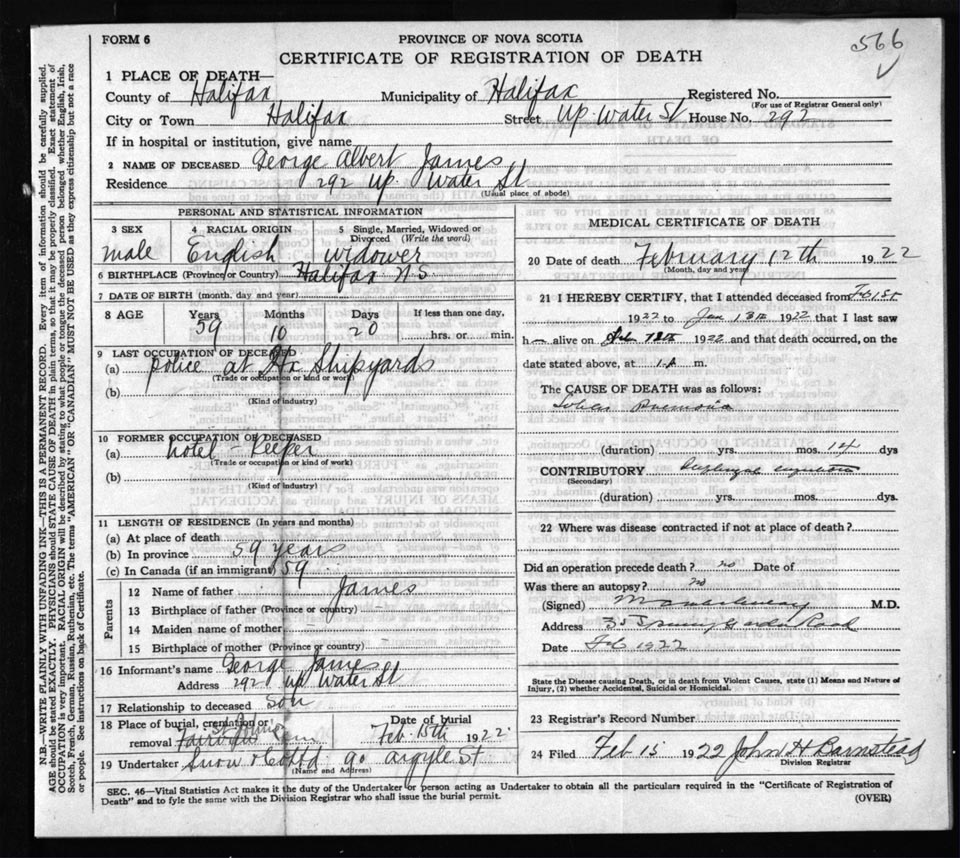 566
FORM 6
PROVINCE OF NOVA SCOTIA
CERTIFICATE OF REGISTRATION OF DEATH
1 PLACE OF DEATH—
County of Halifax Municipality of Halifax Registered No.
(For use of Registrar General only)
City or Town Halifax Street Up Water St House No. 292
If in hospital or institution, give name
2 NAME OF DECEASED George Albert James
Residence 292 up Water St
(Usual place of abode)
PERSONAL AND STATISTICAL INFORMATION
3 SEX 4 RACIAL ORIGIN 5 Single, Married, Widowed or Divorced (Write the word)
male English widower
6 BIRTHPLACE (Province or Country) Halifax N S
7 DATE OF BIRTH (month. day and year)
8 AGE Years Months Days If less than one day,
59 10 20 hrs. or min.
9 LAST OCCUPATION OF DECEASED
(a) police at Hx Shipyards
(Trade or occupation or kind of work)
(b)
(Kind of industry)
10 FORMER OCCUPATION OF DECEASED
(a) hotel-keeper
(Trade or occupation or kind of work)
(b)
(Kind of industry)
11 LENGTH OF RESIDENCE (In years and months)
(a) At place of death
(b) In province 59 years
(c) In Canada (if an immigrant) 59
Parents
12 Name of father James
13 Birthplace of father (Province or country)
14 Maiden name of mother
15 Birthplace of mother (Province or country)
16 Informant's name George James
Address 292 up Water St
17 Relationship to deceased son
18 Place of burial, cremation or removal
Date of burial Feb. 15th 1922
19 Undertaker Snow 90 Argyle St
(Name and Address)
MEDICAL CERTIFICATE OF DEATH
20 Date of death February 12th 1922
(Month, day and year)
21 I HEREBY CERTIFY, that I attended deceased from Feb 1st
1922 to 1922 that I last saw
h— alive on 1922 and that death occurred, on the
date stated above, at m.
The CAUSE OF DEATH was as follows:
Lobar Pneumonia
(duration) yrs. mos. 14 dys
CONTRIBUTORY
(Secondary)
(duration) yrs. mos. dys.
22 Where was disease contracted if not at place of death?
Did an operation precede death? no Date of
Was there an autopsy? no
(Signed) M.D.
Address 35 Road
Date Feb 1922
State the Disease causing Death, or in death from Violent Causes, state (1) Means and Nature of
Injury, (2) whether Accidental, Suicidal or Homicidal.
23 Registrar's Record Number
24 Filed Feb 15 1922 John H Barnstead
Division Registrar
SEC. 46—Vital Statistics Act makes it the duty of the Undertaker or person acting as Undertaker to obtain all the particulars required in the "Certificate of Registration of
Death" and to fyle the same with the Division Registrar who shall issue the burial permit.
(OVER)
N.B.—WRITE PLAINLY WITH UNFADING INK—THIS IS A PERMANENT RECORD. Every item of information should be carefully supplied.
AGE should be stated EXACTLY. PHYSICIANS should STATE CAUSE OF DEATH in plain terms, so that it may be properly classified. Exact statement of
OCCUPATION is very important. RACIAL ORIGIN will be described by stating to what people or tongue the deceased person belonged whether English, Irish,
Scotch, French, German, Russian, Ruthenian, etc. The terms "AMERICAN" OR "CANADIAN" MUST NOT BE USED as they express citizenship but not a race
or people. See instructions on back of Certificate.